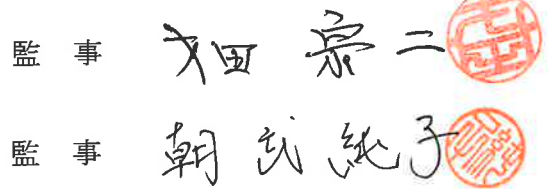 監事 田宗二
監事 朝武純子